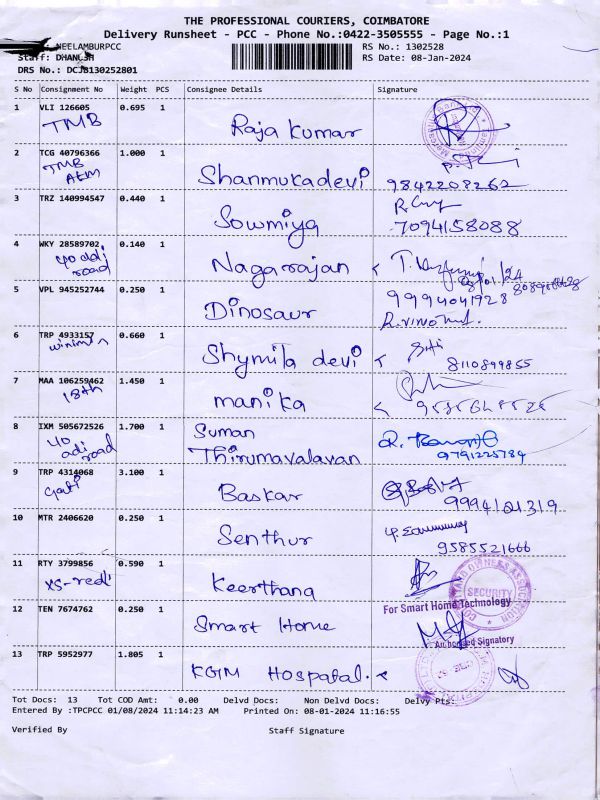 THE PROFESSIONAL COURIERS, COIMBATORE
Delivery Runsheet - PCC - Phone No.:0422-3505555 - Page No.:1
NEELAMBURPCC
RS No.: 1302528
Staff: DHANUSH
RS Date: 08-Jan-2024
DRS No.: DCJB130252801
S No Consignment No Weight PCS Consignee Details Signature
1 VLI 126605 0.695 1
TMB
Raja Kumar
2 TCG 40796366 1.000 1
TMB
ATM
Shanmukadevi
9842208262
3 TRZ 140994547 0.440 1
Sowmiya
7094158088
4 WKY 28589702 0.140 1
road
Nagarajan
5 VPL 945252744 0.250 1
Dinosaur
9994041928
6 TRP 4933157 0.660 1
Shymila devi
8110899855
7 MAA 106259462 1.450 1
18th
manika
8 IXM 505672526 1.700 1
40
adi
road
Suman
Thirumavalavan
9791225784
9 TRP 4314068 3.100 1
Gati
Baskar
10 MTR 2406620 0.250 1
Senthur
9585521666
11 RTY 3799856 0.590 1
Keerthana
SECURITY
For Smart Home Technology
12 TEN 7674762 0.250 1
Smart Home
Authorised Signatory
13 TRP 5952977 1.805 1
KGIM Hospatal.
Tot Docs: 13 Tot COD Amt: 0.00 Delvd Docs: Non Delvd Docs: Delvy Pts:
Entered By :TPCPCC 01/08/2024 11:14:23 AM Printed On: 08-01-2024 11:16:55
Verified By Staff Signature